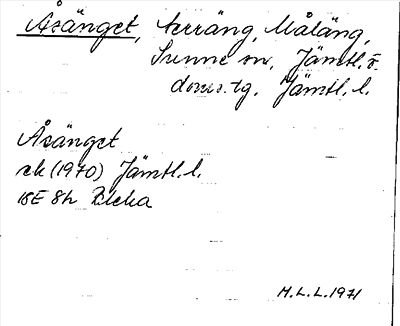 Åsänget, terräng, Måläng,
Sunne sn, Jämtl. ö.
doms.tg. Jämtl. l.
Åsänget
ek (1970) Jämtl. l.
18E 8h
M.L.L. 1971